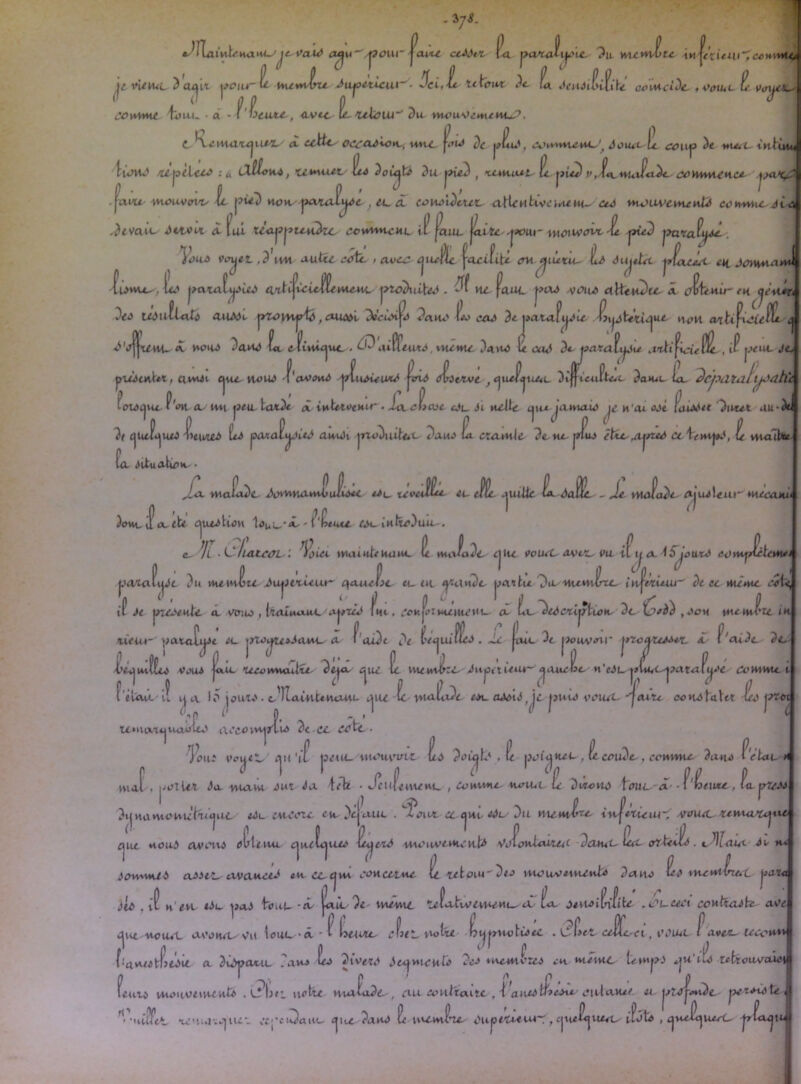 - 378.
Maintenant je vais agir pour faire cesser la paralysie du membre inférieur, comme
je viens d'agir pour le membre supérieur. Ici, le retour de la sensibilité coïncide, vous le voyez
comme tout - à - l'heure, avec le retour du mouvement.
Remarquez à cette occasion, une fois de plus, comment, sous le coup de mes intima
tions répétées : « Allons, remuez les doigts du pied, remuez le pied », la malade commence par
faire mouvoir le pied non paralysé, et à considérer attentivement ces mouvements comme si
devait servir à lui réapprendre comment il faut faire pour mouvoir le pied paralysé.
Vous voyez, d'un autre côté, avec quelle facilité on guérit les sujets placés en somnam
lisme, les paralysies artificiellement produites. Il ne faut pas vous attendre à obtenir en géné
des résultats aussi prompts, aussi décisifs dans les cas de paralysie hystérique non artificielle
s'offrent à nous dans la clinique. D'ailleurs, même dans le cas de paralysie artificielle, il peut se
présenter, ainsi que nous l'avons plusieurs fois observé, quelques difficultés dans la déparalysati
lorsque l'on a un peu tardé à intervenir. La chose est si réelle que jamais je n'ai osé laisser durer au-de
de quelques heures les paralysies ainsi produites dans la crainte de ne plus être, après ce temps, le maître
la situation.
La malade somnambulisée est réveillée et elle quitte la salle. - Le malade ajusteur mécani
dont il a été question tout-à-l'heure est introduit.
M. Charcot : Voici maintenant le malade que vous avez vu il y a 15 jours complètement
paralysé du membre supérieur gauche et en grande partie du membre inférieur de ce même côté
il se présente à vous, traînant après lui, conformément à la description de Todd, son membre in
rieur paralysé et progressant à l'aide de béquilles. Le fait de pouvoir progresser à l'aide de
béquilles vous fait reconnaître déjà que le membre supérieur gauche n'est plus paralysé comme i
l'était il y a 15 jours. Maintenant que le malade est assis, je puis vous faire constater les prog
remarquables accomplis de ce côté.
Vous voyez qu'il peut mouvoir les doigts, le poignet, le coude, comme dans l'état n
mal, porter sa main sur sa tête. Seulement, comme nous le dirons tout-à-l'heure, la press
dynamométrique est encore en défaut. Pour ce qui est du membre inférieur, vous remarquez
que nous avons obtenu quelques légers mouvements volontaires dans les orteils. Mais si no
sommes assez avancés en ce qui concerne le retour des mouvements dans les membres para
sés, il n'en est pas tout-à-fait de même relativement à la sensibilité. Et ceci contraste avec
que nous avons vu tout-à-l'heure chez notre hypnotisée. Chez celle-ci, vous l'avez reconn
l'anesthésie a disparu dans les divers segments des membres en même temps qu'ils retrouvaien
leurs mouvements. Chez notre malade, au contraire, l'anesthésie cutanée et profonde persiste.
Veuillez remarquer cependant que dans le membre supérieur, quelques îlots, quelques plaque